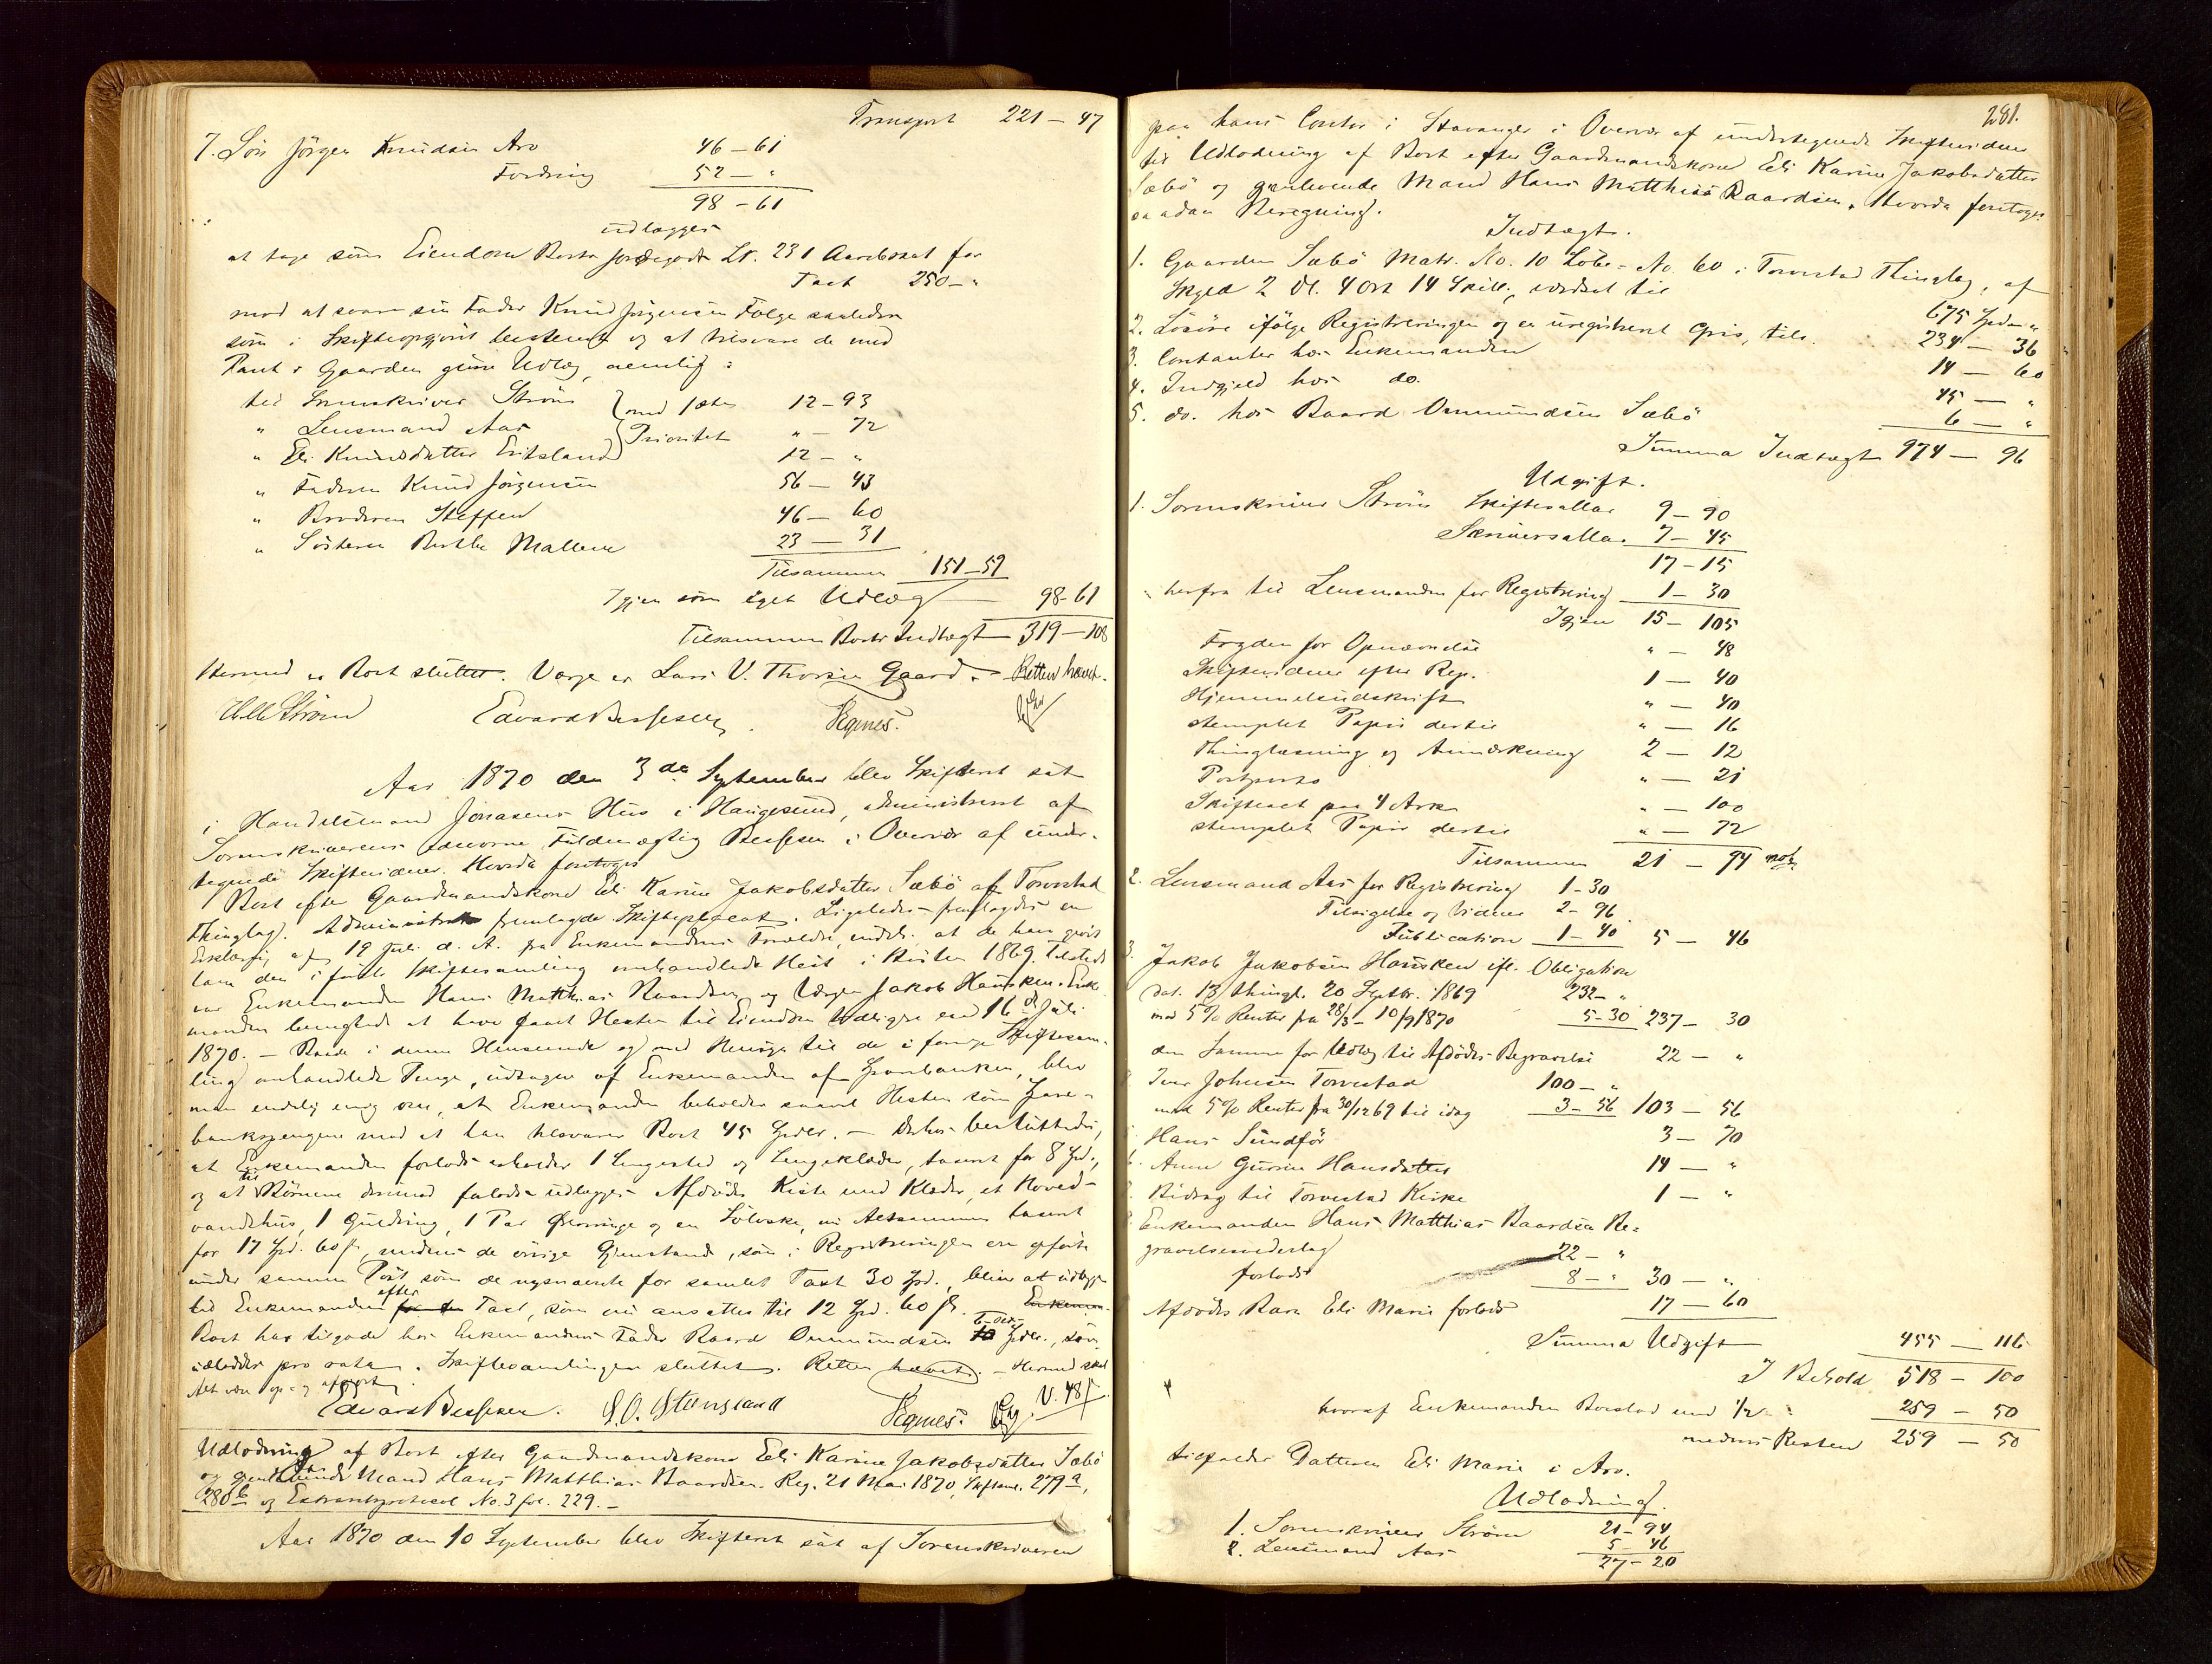 Transport 221 — 47
7. Søn Jörgen Knudsen Arv 46 — 61
Fordring 52 — "
98 — 61
udlægges
at tage som Eiendom Boets Jordegods Lt. 231 Aarebrot for
Taxt 250 — "
mod at svare sin Fader Knud Jörgensen Folge saaledes
som i Skifteopgjöret bestemt og at tilsvare de med
Pant i Gaarden givne Udlæg, nemlig:
til Sorenskriver Ström } med 1ste 12 — 93
" Lensmand Aas } Prioritet " — 72
" Eli Knudsdatter Eriksland } 12 — "
" Faderen Knud Jörgensen 56 — 43
" Broderen Steffen 46 — 60
" Søsteren Berthe Mallene 23 — 31
Tilsammen 151 — 59
Igjen som eget Udlæg — 98-61
Tilsammen Boets Indtægt — 319 — 108
Hermed er Boet sluttet. Værge er Lars V. Thorsen Gaard. — Retten hævet.
Ström Edvard Bessesen. Vegnes.
Aar 1870 den 3de September blev Skifteret sat
i Handelsmand Jonasens Hus i Haugesund, administreret af
Sorenskriverens edsvorne Fuldmægtig Bessesen i Overvær af under-
tegnede Skiftevidner. Hvorda foretoges
Boet efter Gaardmandskone Eli Karine Jakobsdatter Sæbö af Torvestad
Thinglag. Administrator fremlagde Skifteplacat. Ligeledes fremlagdes en
Erklæring af 19 Juli d. A. fra Enkemandens Forældre, indeh. at de have givet
ham den i förste Skiftesamling omhandlede Hest i Høsten 1869. Tilstede
var Enkemanden Hans Matthias Baardsen og Værgen Jakob Hausken. Enke-
manden benegtede at have faaet Hesten til Eiendom tidligere end 16de Juli
1870. — Baade i denne Henseende og med Hensyn til de i forrige Skiftesam-
ling omhandlede Penge, udtagne af Enkemanden af Sparebanken, blev
man endelig enig om, at Enkemanden beholder saavel Hesten som Spare-
bankspengene mod at han tilsvarer Boet 45 Spdlr. — Derhos besluttedes,
at Enkemanden forlods erholder 1 Sengested og Sengeklæder, taxeret for 8 Spd.,
og at til Børnene derimod forlods udlægges Afdødes Kiste med Klæder, et Hoved-
vandshus, 1 Guldring, 1 Par Ørenringe og en Sölvske, nu Altsammen taxeret
for 17 Spd. 60 ß, medens de øvrige Gjenstande, som i Registreringen ere opførte
under samme Post som de nysnævnte for samlet Taxt 30 Spd., blive at udlægge
til Enkemanden efter Taxt, som nu ansættes til 12 Spd. 60 ß. Enkeman-
Boet har tilgode hos Enkemandens Fader Baard Ommundsen 6 Spdlr., som
udlægges pro rata. Skiftesamlingen sluttet. Retten hævet. — Hermed skal
Alt være op- og afgjort.
Edvard Bessesen. S. O. Steensland Vegnes. V. 48 ß
Udlodning af Boet efter Gaardmandskone Eli Karine Jakobsdatter Sæbö
og gjenlevende Mand Hans Matthias Baardsen. Reg. 21 Mai 1870, Skiftesaml. 279 a,
280 b og Extraretsprotocol No. 3 fol. 229. —
Aar 1870 den 10 September blev Skifteret sat af Sorenskriveren
281.
paa hans Contor i Stavanger i Overvær af undertegnede Skiftevidner
til Udlodning af Boet efter Gaardmandskone Eli Karine Jakobsdatter
Sæbö og gjenlevende Mand Hans Matthias Baardsen. Hvorda foretoges
saadan Beregning.
Indtægt.
1. Gaarden Sæbö Matr. No. 10 Löbe-No. 60 i Torvestad Thinglag, af
Skyld 2 Dl. 4 Ort 14 Skill., værdsat til 675 Spd. "
2. Lösöre ifölge Registreringen og en uregistreret Gris, tils. 234 — 36
3. Contanter hos Enkemanden 14 — 60
4. Indgjeld hos do. 45 — "
5. do. hos Baard Ommundsen Sæbö 6 — "
Summa Indtægt 974 — 96
Udgift.
1. Sorenskriver Ström Skiftesallar 9 — 90
Skriversallar 7 — 45
17 — 15
herfra til Lensmanden for Registrering 1 — 30
Igjen 15 — 105
Fogden for Opnævnelse " — 48
Skiftevidner efter Reg. 1 — 40
Hjemmelsudskrift " — 40
stemplet Papir dertil " — 16
Thinglæsning og Anmærkning 2 — 12
Postporto " — 21
Skifteact paa 4 Ark " — 100
stemplet Papir dertil " — 72
Tilsammen 21 — 94
2. Lensmand Aas for Registrering 1-30
Tilsigelse og Vidner 2- 96
Publication 1 — 40 5 — 46
3. Jakob Jakobsen Hausken ifl. Obligation
dat. 13 thingl. 20 Septbr. 1869 232 — "
med 5% Renter fra 28/3 — 10/9 1870 5-30 237 — 30
den Samme for Udlæg til Afdödes Begravelse 22 — "
Iver Johnsen Torvestad 100 — "
med 5% Renter fra 30/12 69 til idag 3 — 56 103 — 56
Hans Sundför 3 — 70
6. Anne Gurine Hansdatter 14 — "
Bidrag til Torvestad Kirke 1 — "
Enkemanden Hans Matthias Baardsen Be-
gravelsesvederlag 22 — "
forlods 8 — " 30 — "
Afdödes Barn Eli Marie forlods 17 — 60
Summa Udgift 455 — 116
I Behold 518 — 100
hvoraf Enkemanden Boeslod med 1/2 259 — 50
medens Resten 259 — 50
tilfalder Datteren Eli Marie i Arv.
Udlodning.
1. Sorenskriver Ström 21 — 94
2. Lensmand Aas 5 — 46
27 — 20